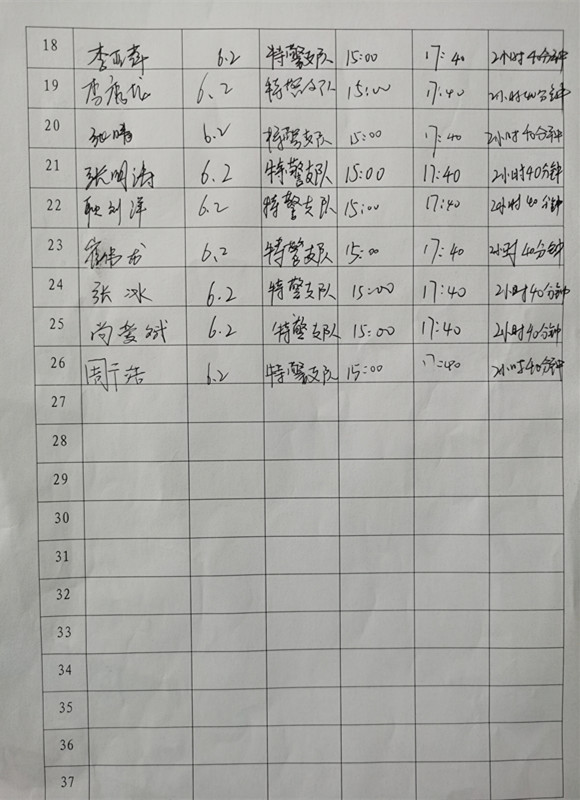 18 李正 6.2 特警支队 15:00 17:40 2小时40分钟
19 6.2 15:00 17:40 2小时40分钟
20 张晴 6.2 特警支队 15:00 17:40 2小时40分钟
21 张明涛 6.2 特警支队 15:00 17:40 2小时40分钟
22 耿刘洋 6.2 特警支队 15:00 17:40 2小时40分钟
23 崔伟龙 6.2 特警支队 15:00 17:40 2小时40分钟
24 张冰 6.2 特警支队 15:00 17:40 2小时40分钟
25 尚孝斌 6.2 特警支队 15:00 17:40 2小时40分钟
26 周浩 6.2 特警支队 15:00 17:40 2小时40分钟
27
28
29
30
31
32
33
34
35
36
37